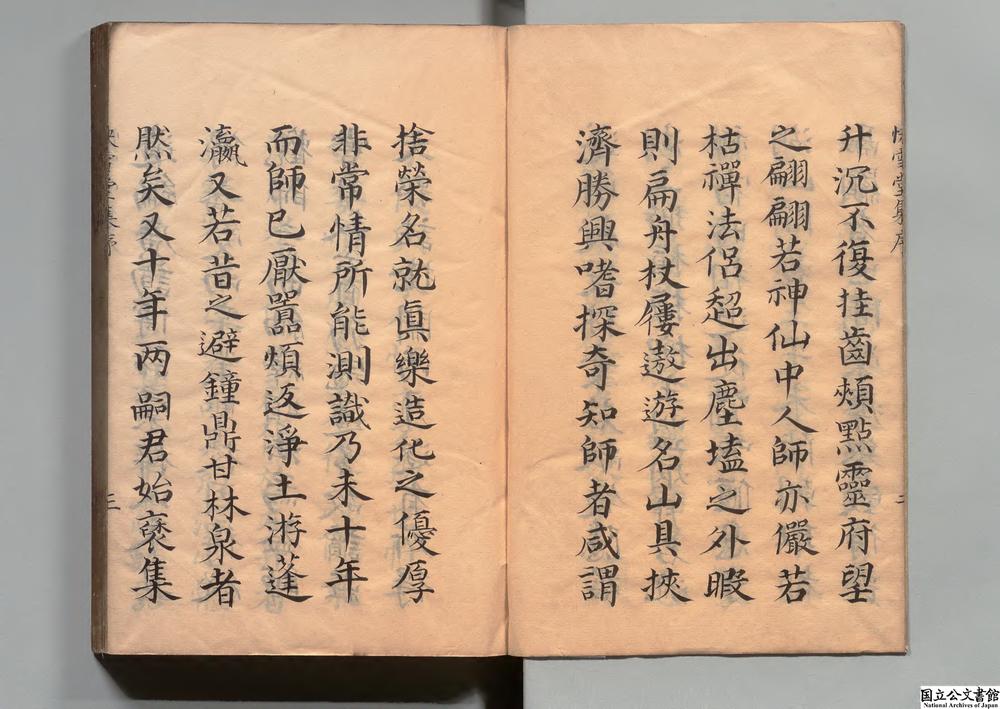 升沉不復挂齒頰點靈府望
之翩翩若神仙中人師亦儼若
枯禪法侶超出塵壒之外暇
則扁舟杖屨遨遊名山具挾
濟勝興嗜探奇知師者咸謂
捨榮名就眞樂造化之優厚
非常情所能測識乃未十年
而師已厭囂煩返淨土游蓬
瀛又若昔之避鐘鼎甘林泉者
然矣又十年两嗣君始裒集
快雪堂集序
二
快雪堂集序
三
国立公文書館
National Archives of Japan